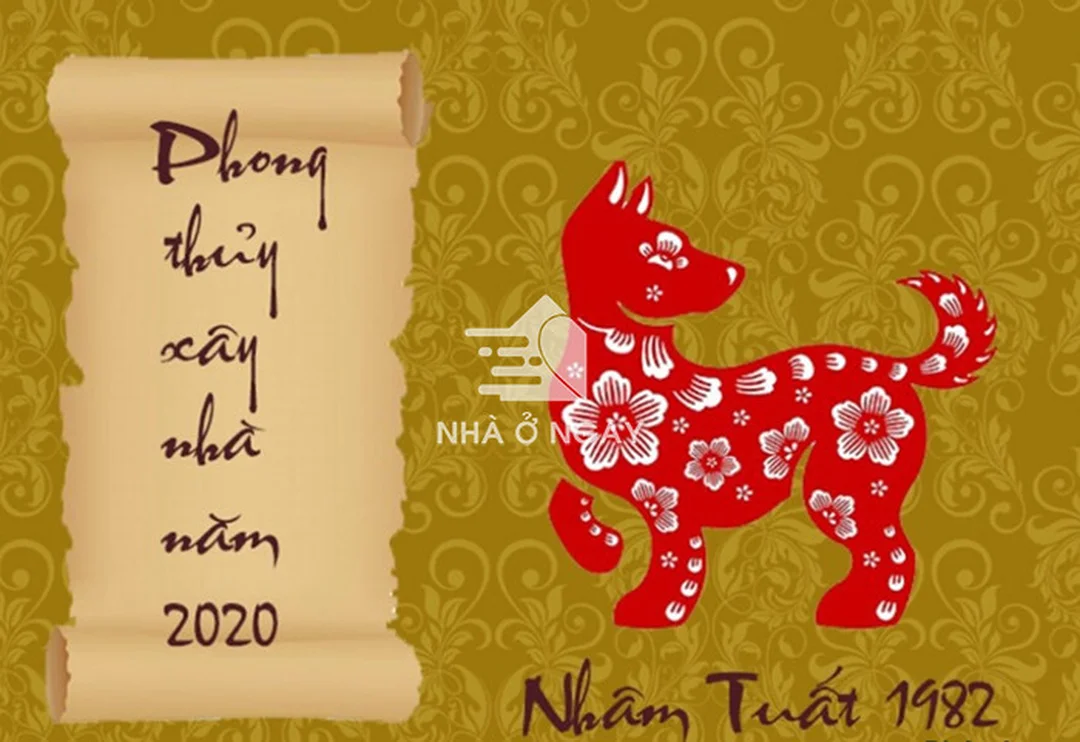 Phong
thủy
xây
nhà
năm
2020
NHÀ Ở NGAY
Nhâm Tuất 1982